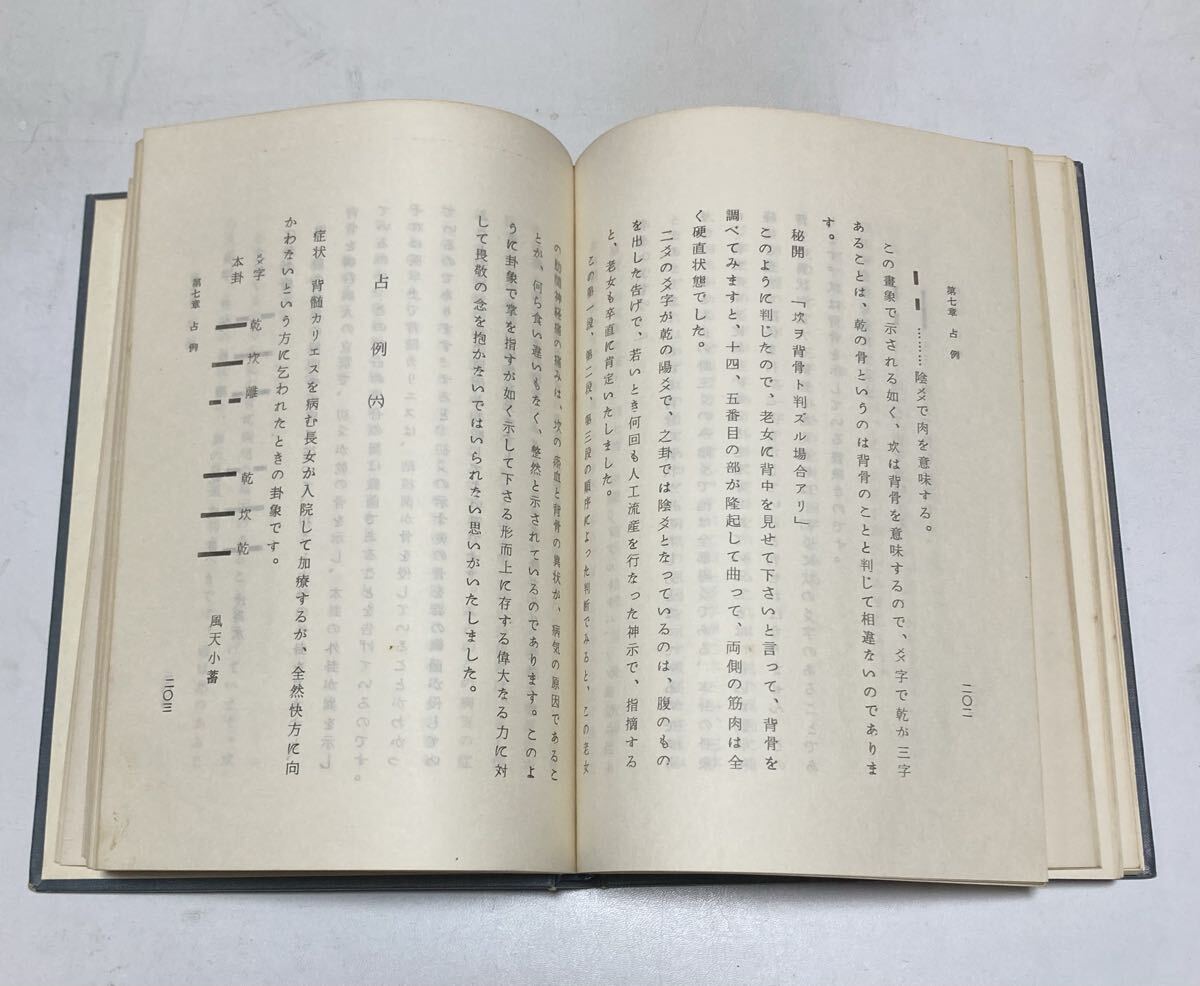 第七章 占 例
二〇二
…………陰爻で肉を意味する。
この畫象で示される如く、坎は背骨を意味するので、爻字で乾が三字
あることは、乾の骨というのは背骨のことと判じて相違ないのでありま
す。
秘開 「坎ヲ背骨ト判ズル場合アリ」
このように判じたので、老女に背中を見せて下さいと言って、背骨を
調べてみますと、十四、五番目の部が隆起して曲って、両側の筋肉は全
く硬直状態でした。
二爻の爻字が乾の陽爻で、之卦では陰爻となっているのは、腹のもの
を出した告げで、若いとき何回も人工流産を行なった神示で、指摘する
と、老女も卒直に肯定いたしました。
この第一段、第二段、第三段の順序によった判断でみると、この老女
の肋間神経痛の痛みは、坎の瘀血と背骨の異状が、病気の原因であるこ
とが、何ら食い違いもなく、整然と示されているのであります。このよ
うに卦象で掌を指すが如く示して下さる形而上に存する偉大なる力に対
して畏敬の念を抱かないではいられない思いがいたしました。
占 例 ㈥
症状 背髄カリエスを病む長女が入院して加療するが、全然快方に向
かわないという方に乞われたときの卦象です。
爻字 乾 坎 離 乾 坎 乾
本卦 風天小蓄
第七章 占 例
二〇三